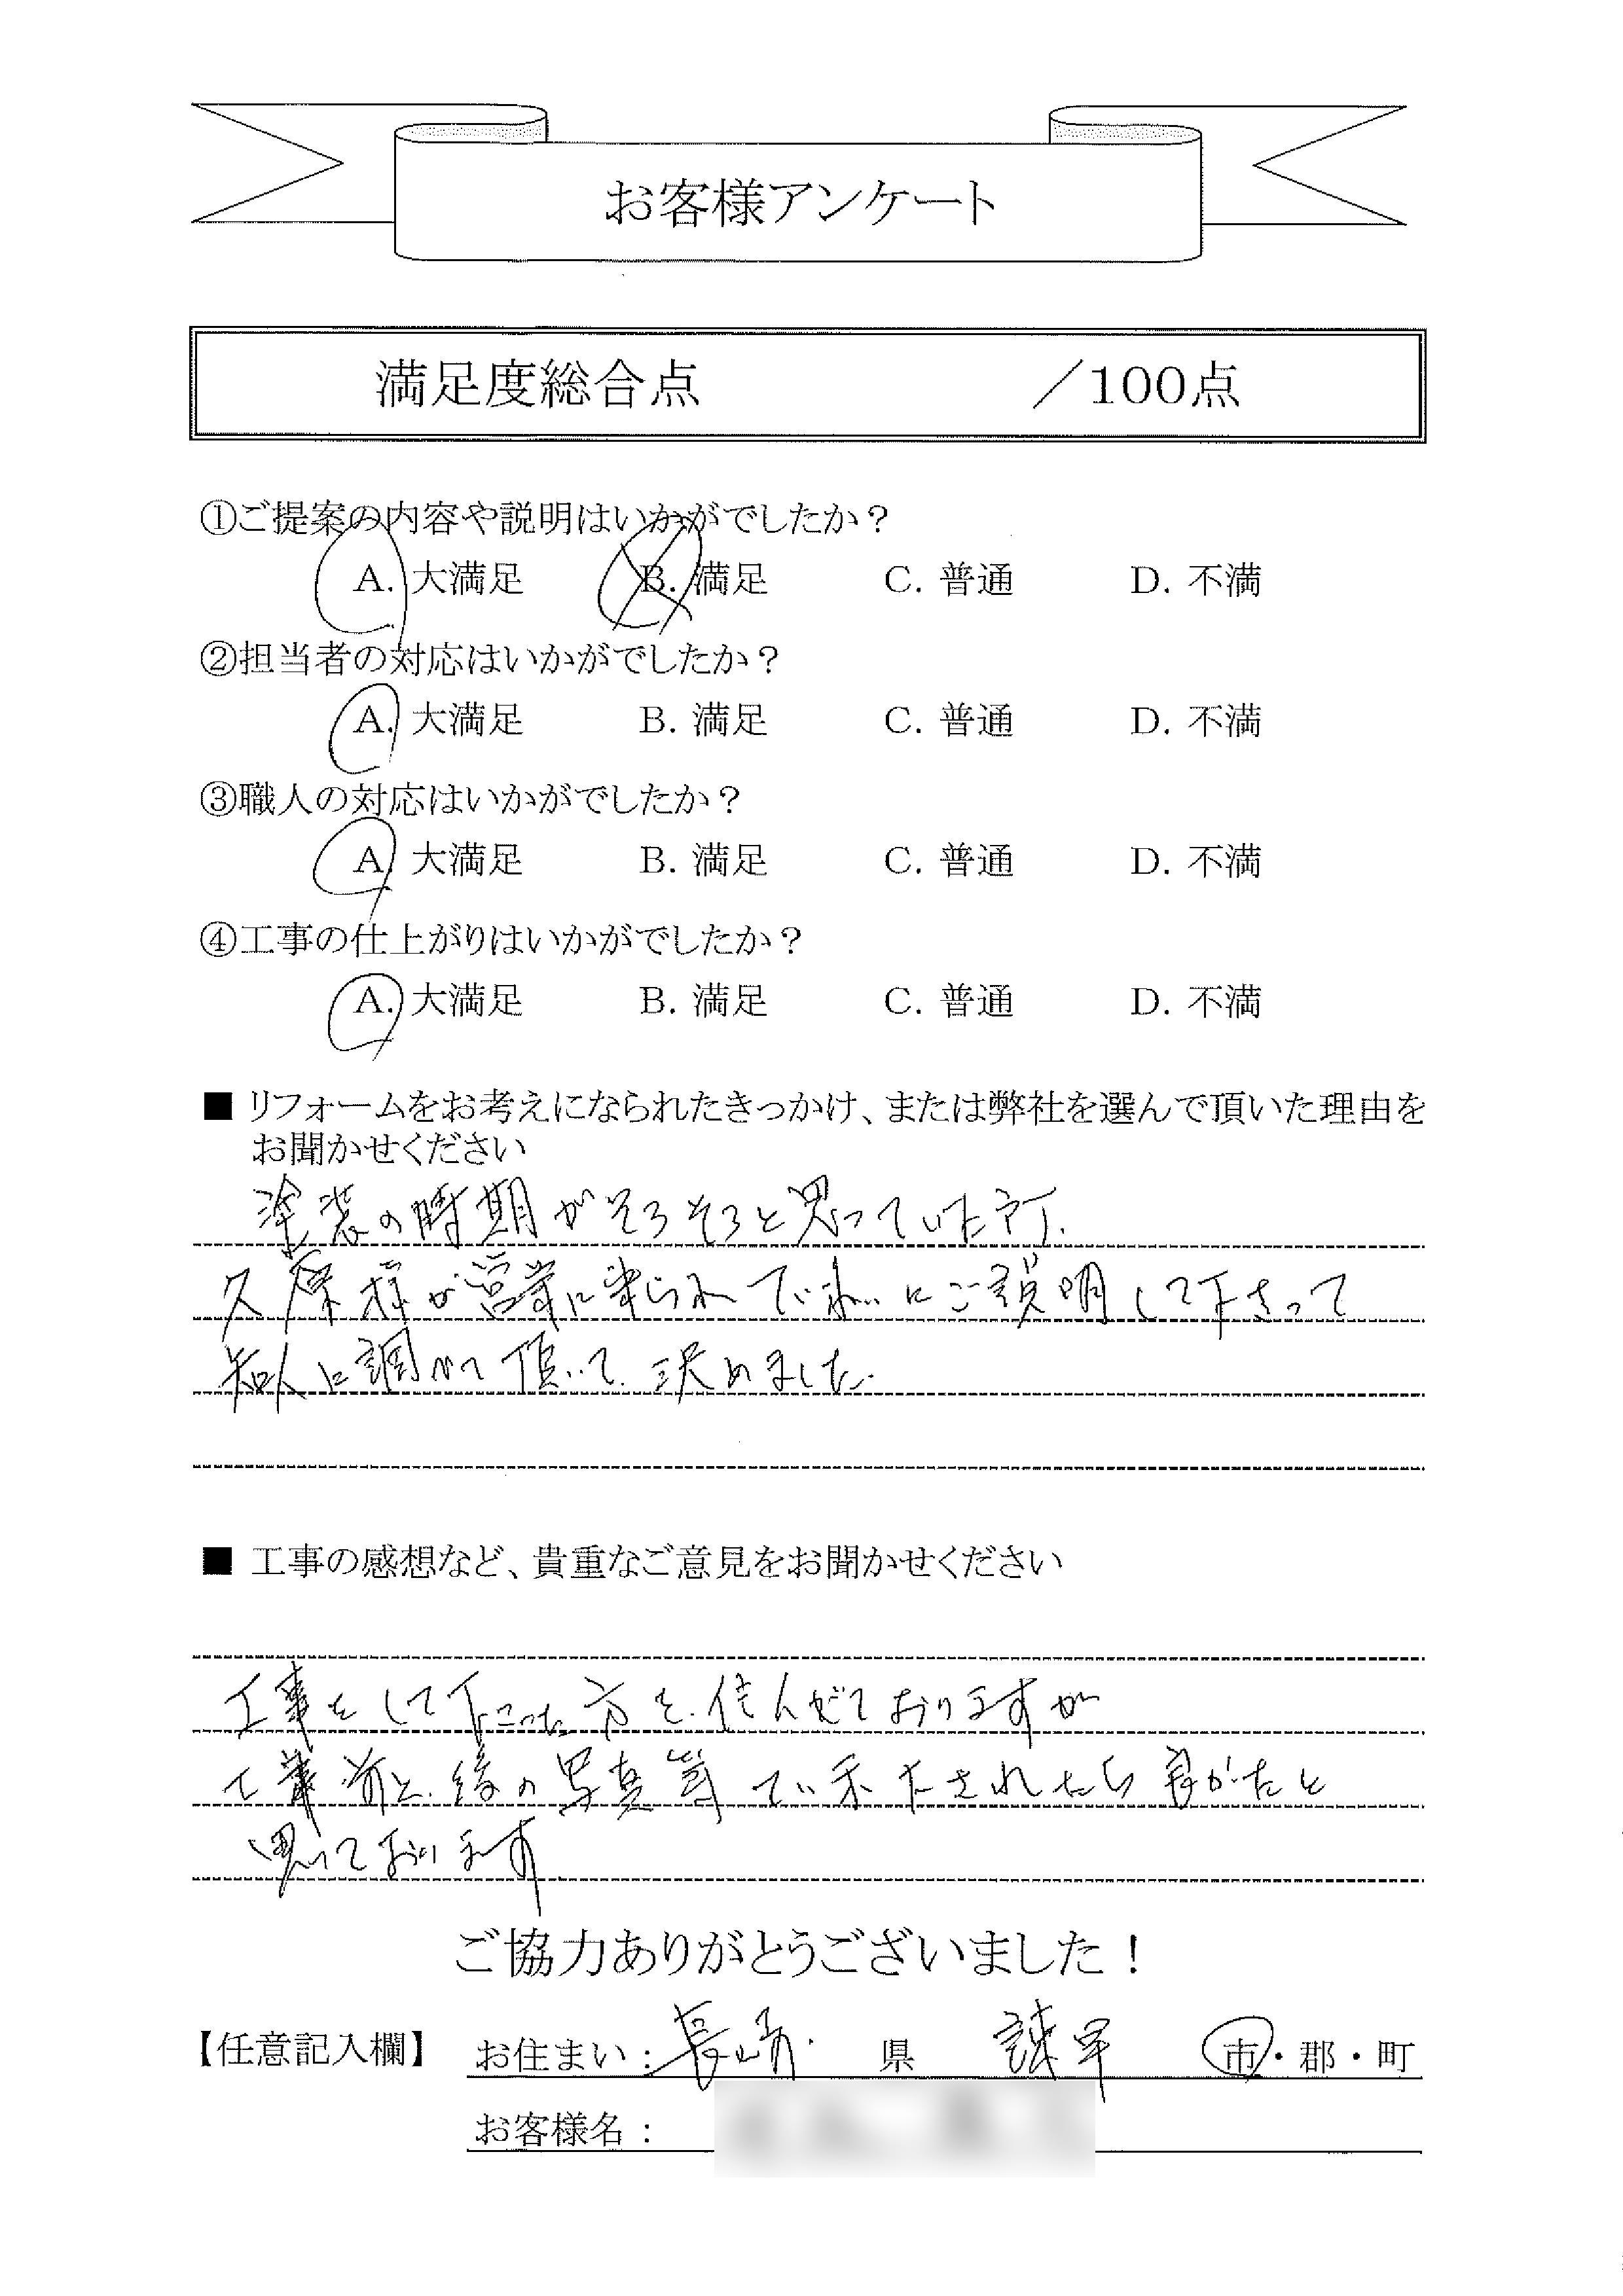 お客様アンケート
満足度総合点 ／100点
①ご提案の内容や説明はいかがでしたか？
A. 大満足 B. 満足 C. 普通 D. 不満
②担当者の対応はいかがでしたか？
A. 大満足 B. 満足 C. 普通 D. 不満
③職人の対応はいかがでしたか？
A. 大満足 B. 満足 C. 普通 D. 不満
④工事の仕上がりはいかがでしたか？
A. 大満足 B. 満足 C. 普通 D. 不満
■ リフォームをお考えになられたきっかけ、または弊社を選んで頂いた理由を
お聞かせください
塗装の時期がそろそろと思っていた所、
久保様が営業に来られてていねいにご説明して下さって
知人に調べて頂いて、決めました。
■ 工事の感想など、貴重なご意見をお聞かせください
工事をして下さった方を、信んじておりますが
工事前と、後の写真等で示
思っております
ご協力ありがとうございました！
【任意記入欄】 お住まい：長崎 県 諫早 市・郡・町
お客様名：